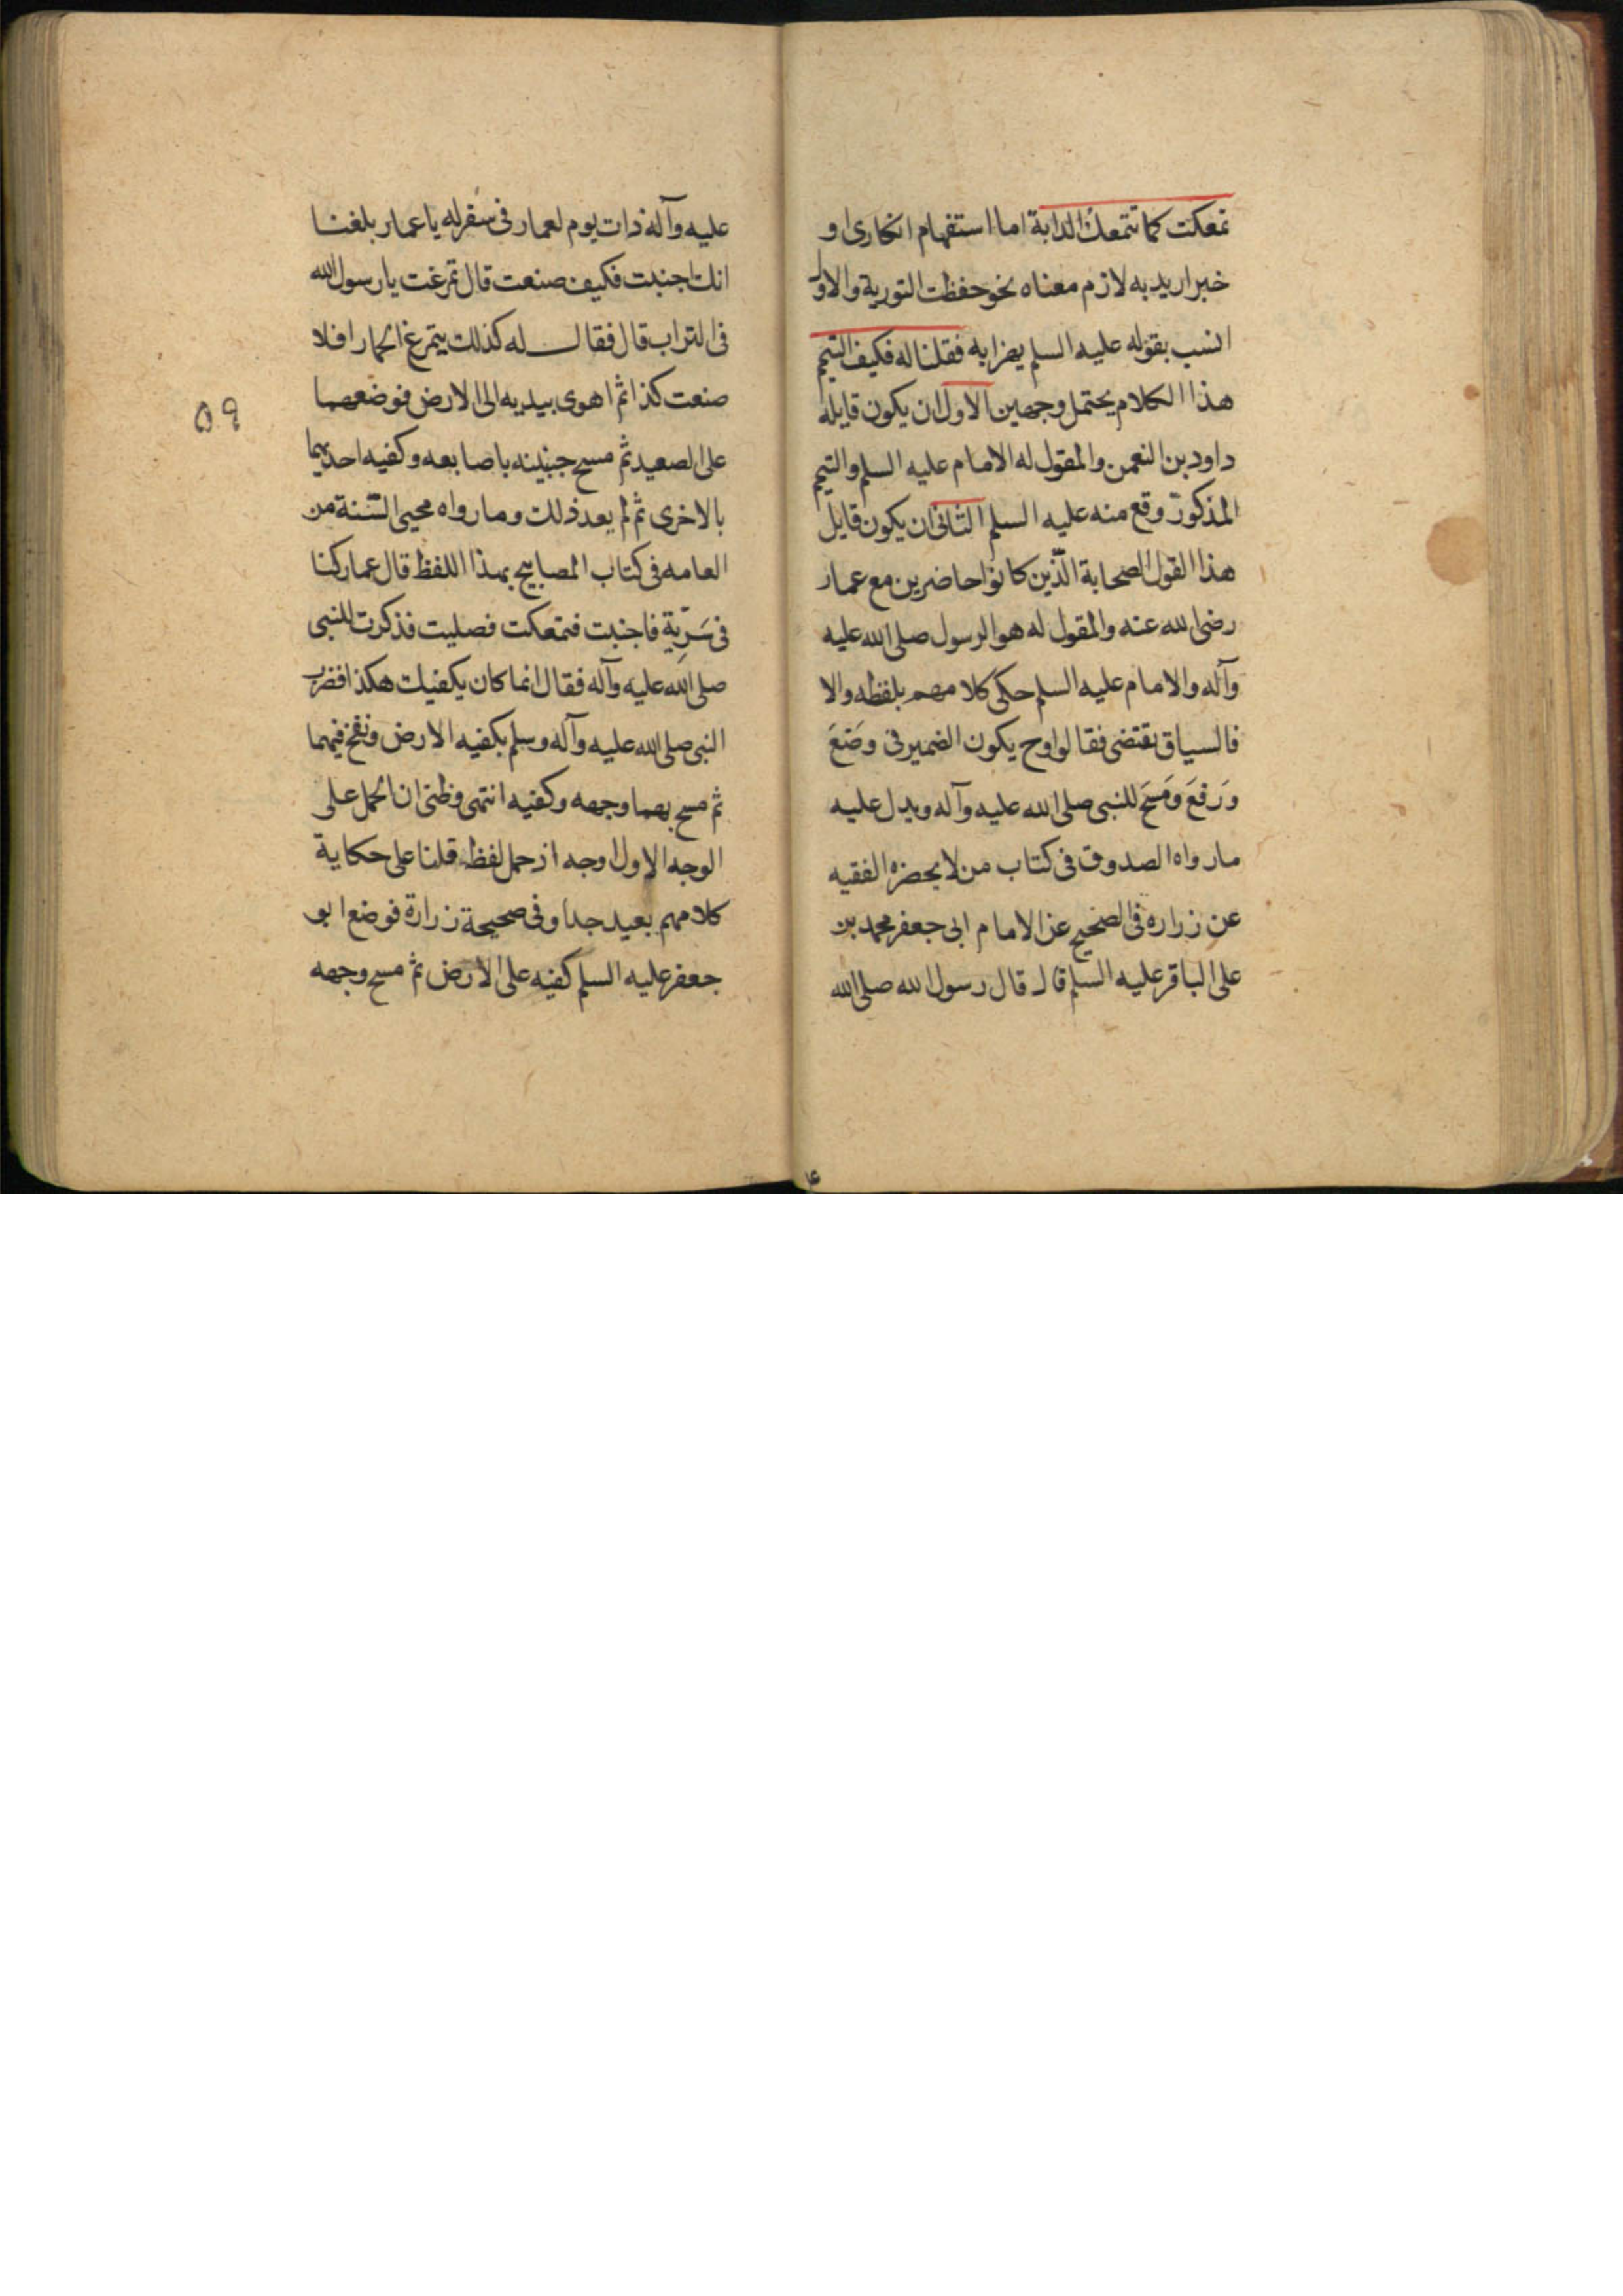 تمعكت كما تتمعك الدابة اما استفهام انكارى او
خبر اريد به لازم معناه نحو حفظت التورية والاول
انسب بقوله عليه السلم يهزا به فقلنا له فكيف التيمم
هذا الكلام يحتمل وجهين الاول ان يكون قايله
داود بن النعمن والمقول له الامام عليه السلم والتيمم
المذكور وقع منه عليه السلم الثانى ان يكون قايل
هذا القول الصحابة الّذين كانوا حاضرين مع عمار
رضى الله عنه والمقول له هو الرسول صلى الله عليه
وآله والامام عليه السلم حكى كلامهم بلفظه والا
فالسياق يقتضى فقالوا وح يكون الضمير فى وضَعَ
ورَفعَ ومَسَحَ للنبى صلى الله عليه وآله ويدل عليه
ما رواه الصدوق فى كتاب من لا يحضره الفقيه
عن زراره فى الصحيح عن الامام ابى جعفر محمد بن
على الباقر عليه السلم قال قال رسول الله صلى الله
عليه وآله ذات يوم لعمار فى سفر له يا عمار بلغنا
انك اجنبت فكيف صنعت قال تمرغت يا رسول الله
فى التراب قال فقال له كذلك يتمرغ الحمار افلا
صنعت كذا ثم اهوى بيديه الى الارض فوضعهما
على الصعيد ثم مسح جبينه باصابعه وكفيه احديهما
بالاخرى ثم لم يعد ذلك وما رواه محيى السّنة من
العامه فى كتاب المصابيح بهذا اللفظ قال عمار كنا
فى سَرِيّة فاجنبت فتمعكت فصليت فذكرت للنبى
صلى الله عليه وآله فقال انما كان يكفيك هكذا فضرب
النبى صلى الله عليه وآله وسلم بكفيه الارض ونفخ فيهما
ثم مسح بهما وجهه وكفيه انتهى وظنى ان الحمل على
الوجه الاول اوجه اذ حمل لفظه قلنا على حكاية
كلامهم بعيد جدا وفى صحيحة زرارة فوضع ابو
جعفر عليه السلم كفيه على الارض ثم مسح وجهه
٥٩